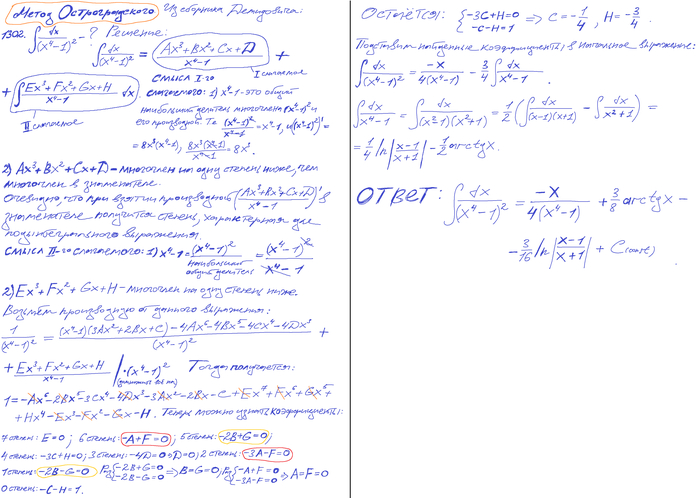 Метод Остроградского Из сборника Демидовича.
1302. ∫dx/(x⁴-1)² - ? Решение:
∫dx/(x⁴-1)² = (Ax³+Bx²+Cx+D)/(x⁴-1) +
I слагаемое
+ ∫(Ex³+Fx²+Gx+H)/(x⁴-1) dx
II слагаемое
смысл I-го
слагаемого: 1) x⁴-1 - это общий
наибольший делитель многочлена (x⁴-1)² и
его производной. Т.е. (x⁴-1)²/(x⁴-1) = x⁴-1, и ((x⁴-1)²)' =
= 8x³(x⁴-1), 8x³(x⁴-1)/(x⁴-1) = 8x³.
2) Ax³+Bx²+Cx+D - многочлен на одну степень ниже, чем
многочлен в знаменателе.
Очевидно, что при взятии производной ((Ax³+Bx²+Cx+D)/(x⁴-1))' в
знаменателе получится степень, характерная для
подынтегрального выражения.
смысл II-го слагаемого: 1) x⁴-1 = (x⁴-1)²/наибольший общий делитель = (x⁴-1)²/(x⁴-1)
2) Ex³+Fx²+Gx+H - многочлен на одну степень ниже.
Возьмём производную от данного выражения:
1/(x⁴-1)² = ((x⁴-1)(3Ax²+2Bx+C)-4Ax⁶-4Bx⁵-4Cx⁴-4Dx³)/(x⁴-1)² +
+ (Ex³+Fx²+Gx+H)/(x⁴-1) | ·(x⁴-1)² Тогда получается:
1=-Ax⁶-2Bx⁵-3Cx⁴-4Dx³-3Ax²-2Bx-C+Ex⁷+Fx⁶+Gx⁵+
+Hx⁴-Ex³-Fx²-Gx-H. Теперь можно узнать коэффициенты:
7 степень: E=0; 6 степень: -A+F=0; 5 степень: -2B+G=0;
4 степень: -3C+H=0; 3 степень: -4D=0⇒D=0; 2 степень: -3A-F=0
1 степень: -2B-G=0 {-2B+G=0 -2B-G=0 ⇒ B=G=0; {-A+F=0 -3A-F=0 ⇒ A=F=0
0 степень: -C-H=1.
Остаётся: {-3C+H=0 -C-H=1 ⇒ C=-1/4, H=-3/4.
Подставим найденные коэффициенты в начальное выражение:
∫dx/(x⁴-1)² = -x/4(x⁴-1) - 3/4 ∫dx/(x⁴-1).
∫dx/(x⁴-1) = ∫dx/(x²-1)(x²+1) = 1/2 (∫dx/(x-1)(x+1) - ∫dx/(x²+1)) =
= 1/4 ln|(x-1)/(x+1)| - 1/2 arctgx.
ОТВЕТ: ∫dx/(x⁴-1)² = -x/4(x⁴-1) + 3/8 arctgx -
- 3/16 ln|(x-1)/(x+1)| + C(const)